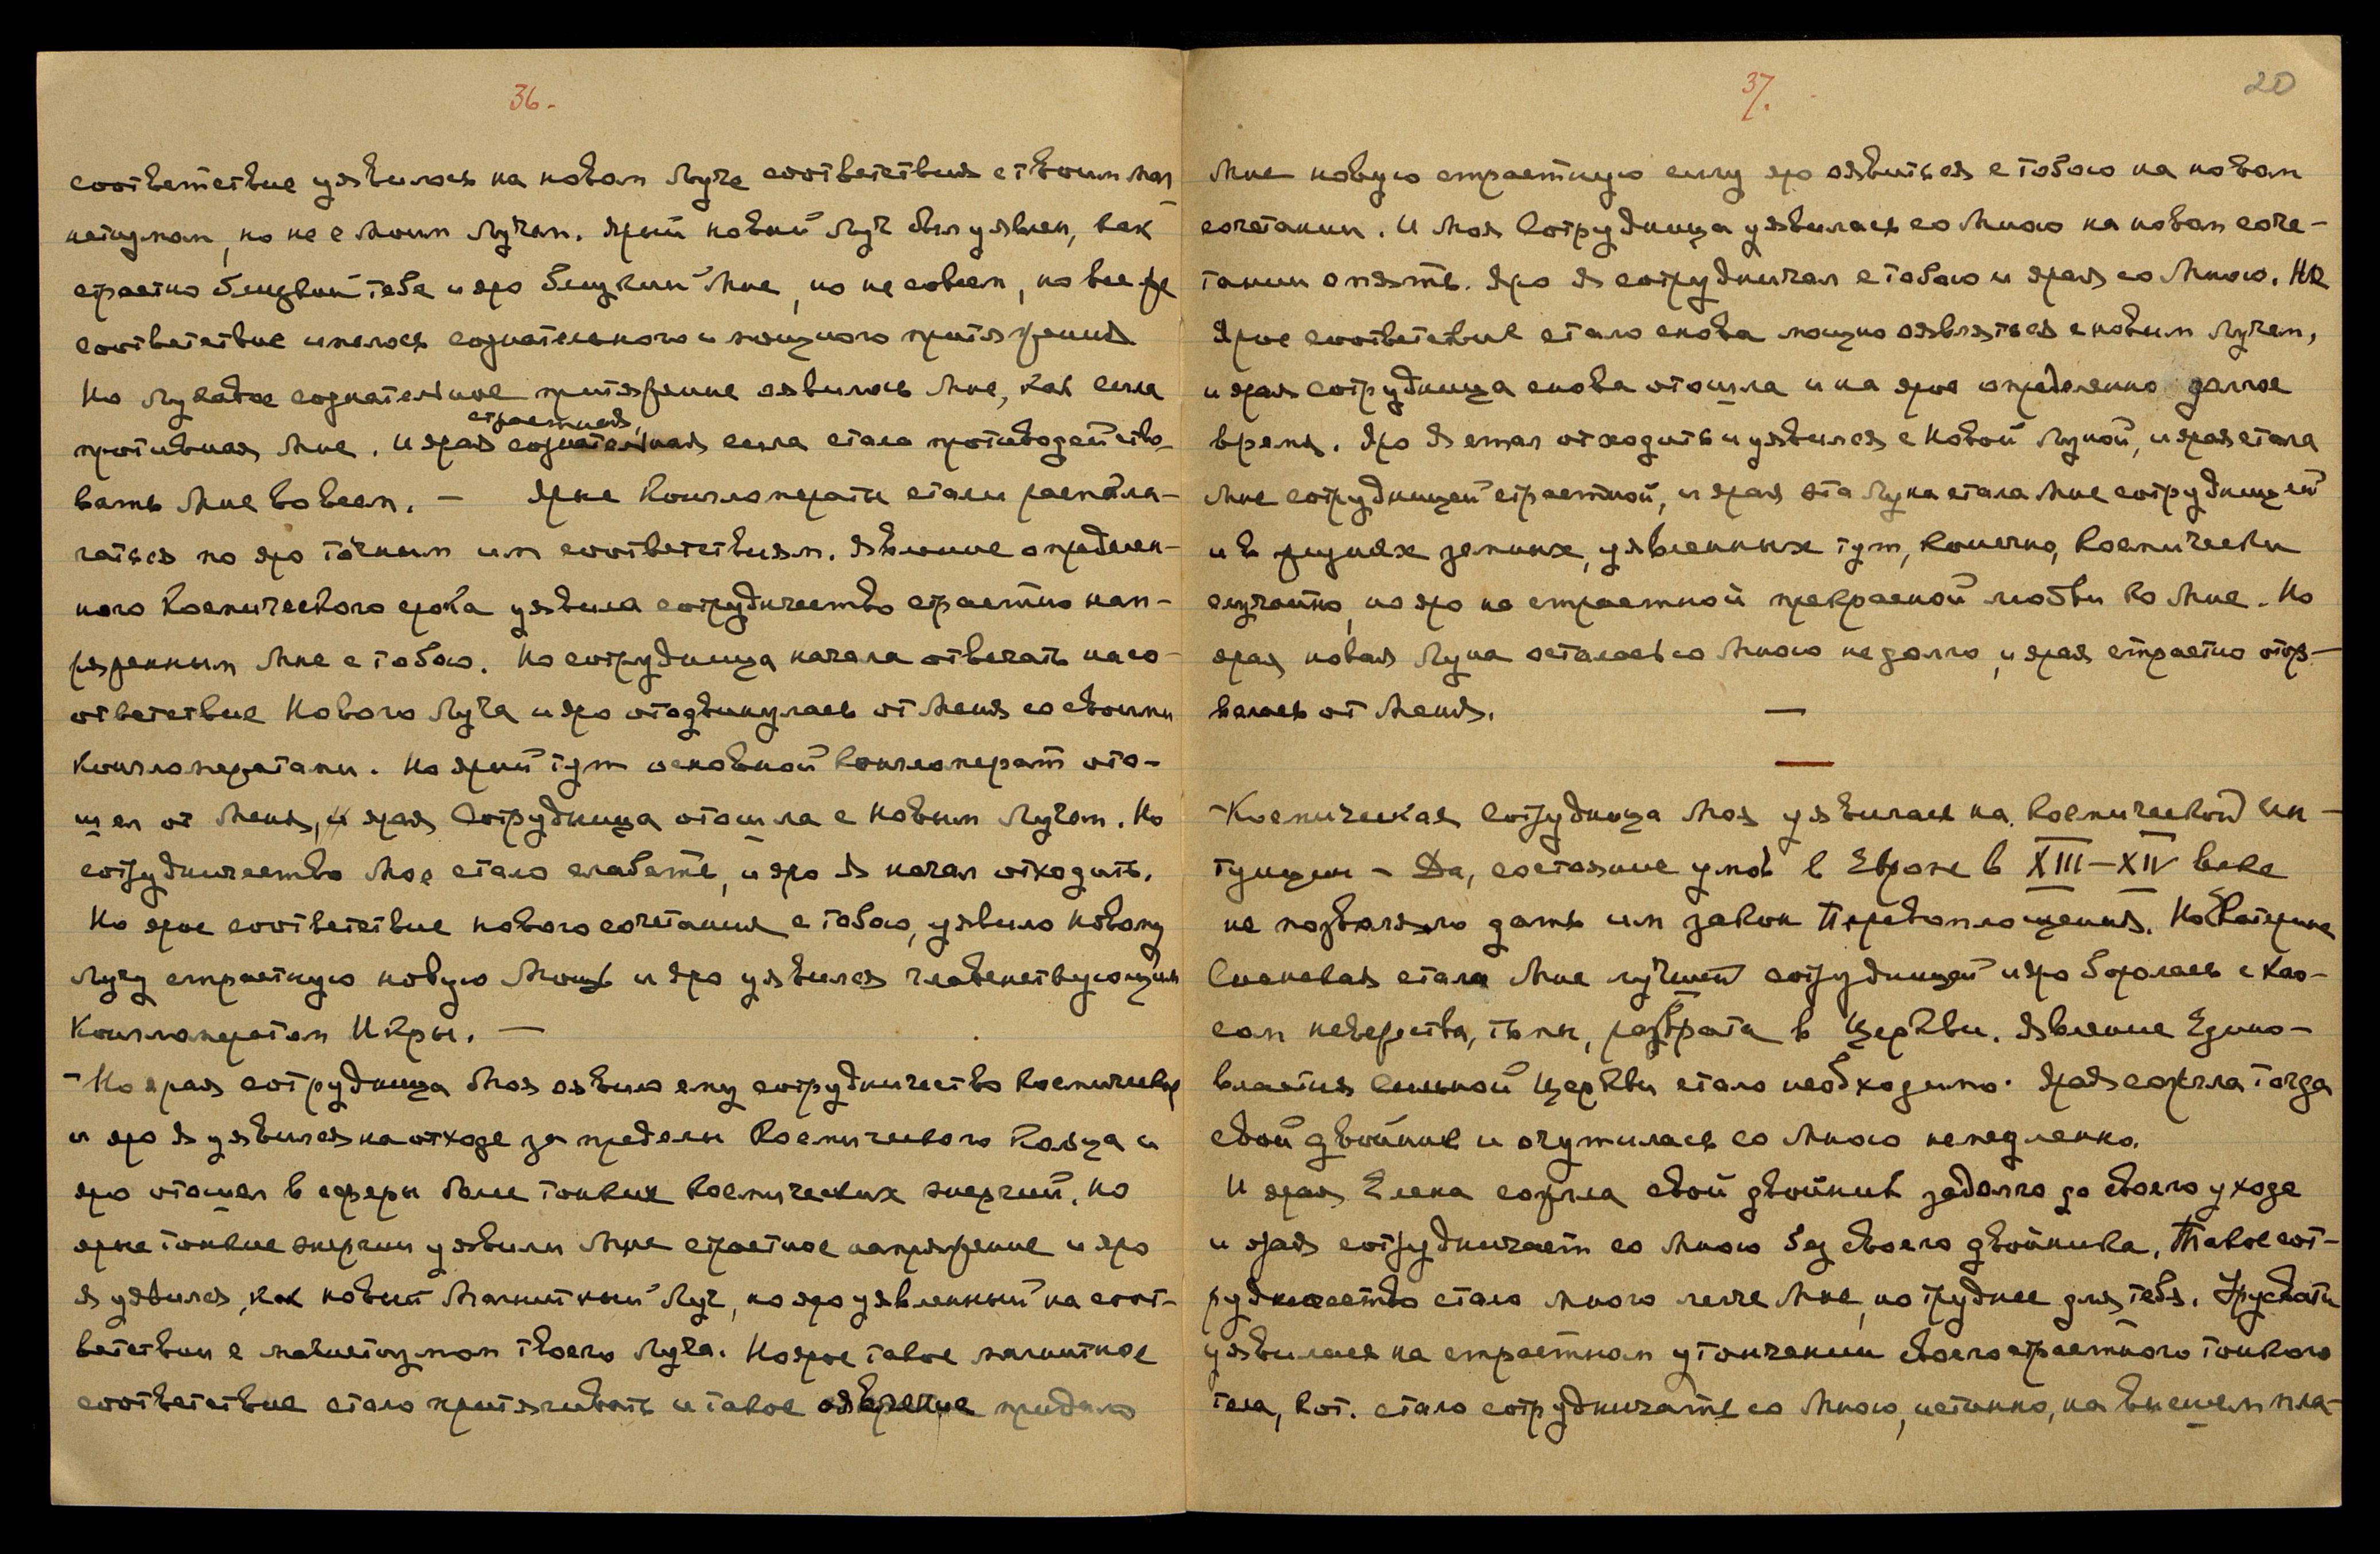 36.
соответствие уявилось на новом Луче соответствия с твоим маг
нетизмом, но не с Моим Лучам. Ярый новый Луч был уявлен, как
страстно близкий тебе и яро близкий Мне, но не совсем, но все же
соответствие имелось сознательного и мощного притяжения
Но лукавое сознательное притяжение оявилось Мне, как сила
противная Мне. И ярая страстная, сознательная сила стала противодейство-
вать Мне во всем. — Ярые Конгломераты стали распола-
гаться по яро точным им соответствиям. Явление определен-
ного Космического срока уявило сотрудничество страстно нап-
ряженным Мне с тобою. Но сотрудница начала отвечать на со-
ответствие Нового Луча и яро отодвинулась от Меня со своими
Конгломератами. Но ярый тут основной Конгломерат ото-
шел от Меня, и ярая Сотрудница отошла с Новым Лучом. Но
сотрудничество Мое стало слабеть, и яро Я начал отходить.
Но ярое соответствие нового сочетания с тобою, уявило Новому
Лучу страстную новую Мощь и яро уявился главенствующим
Конгломератом Искры. —
- Но ярая сотрудница Моя оявило ему сотрудничество Космическ
и яро Я уявился на отходе за пределы Космического Кольца и
яро отошел в сферы более тонких Космических энергий. Но
ярые тонкие энергии уявили Мне страстное напряжение и яро
Я уявился, как новый Магнитный Луч, но яро уявленный на соот-
ветствии с магнетизмом твоего Луча. Но ярое такое магнитное
соответствие стало притягивать и такое придало
37.
20
Мне новую страстную силу яро оявиться с тобою на новом
сочетании. И Моя Сотрудница уявилась со Мною на новом соче-
тании опять. Яро Я сотрудничал с тобою и ярая со Мною. Но
Ярое соответствие стало снова мощно оявляться с новым Лучем,
и ярая сотрудница снова отошла и на ярое определенно долгое
время. Яро Я стал отходить и уявился с Новой Луной, и ярая стала
Мне сотрудницей страстной, и ярая эта Луна стала Мне сотрудницей
и в жизнях земных, уявленных тут, конечно, Космически
случайно, но яро на страстной прекрасной любви ко Мне. Но
ярая новая Луна осталась со Мною недолго, и ярая страстно отор-
валась от Меня. —
—
- Космическая сотрудница Моя уявилась на Космической Ин-
туиции - Да, состояние умов в Европе в XIII—XIV веке
не позволяло дать им закон Перевоплощения. Но Катерина
Сиенская стала Мне лучшей сотрудницей и яро боролась с хао-
сом невежества, тьмы, разврата в Церкви. Явление Едино-
властия Сильной Церкви стало необходимо. Ярая сожгла тогда
свой двойник и очутилась со Мною немедленно.
И ярая Елена сожгла свой двойник задолго до своего ухода
и ярая сотрудничает со Мною без своего двойника. Такое сот-
рудничество стало много легче Мне, но труднее для тебя. Урусвати
уявилась на страстном утончении своего страстного тонкого
тела, кот. стало сотрудничать со Мною, истинно, на высшем пла-